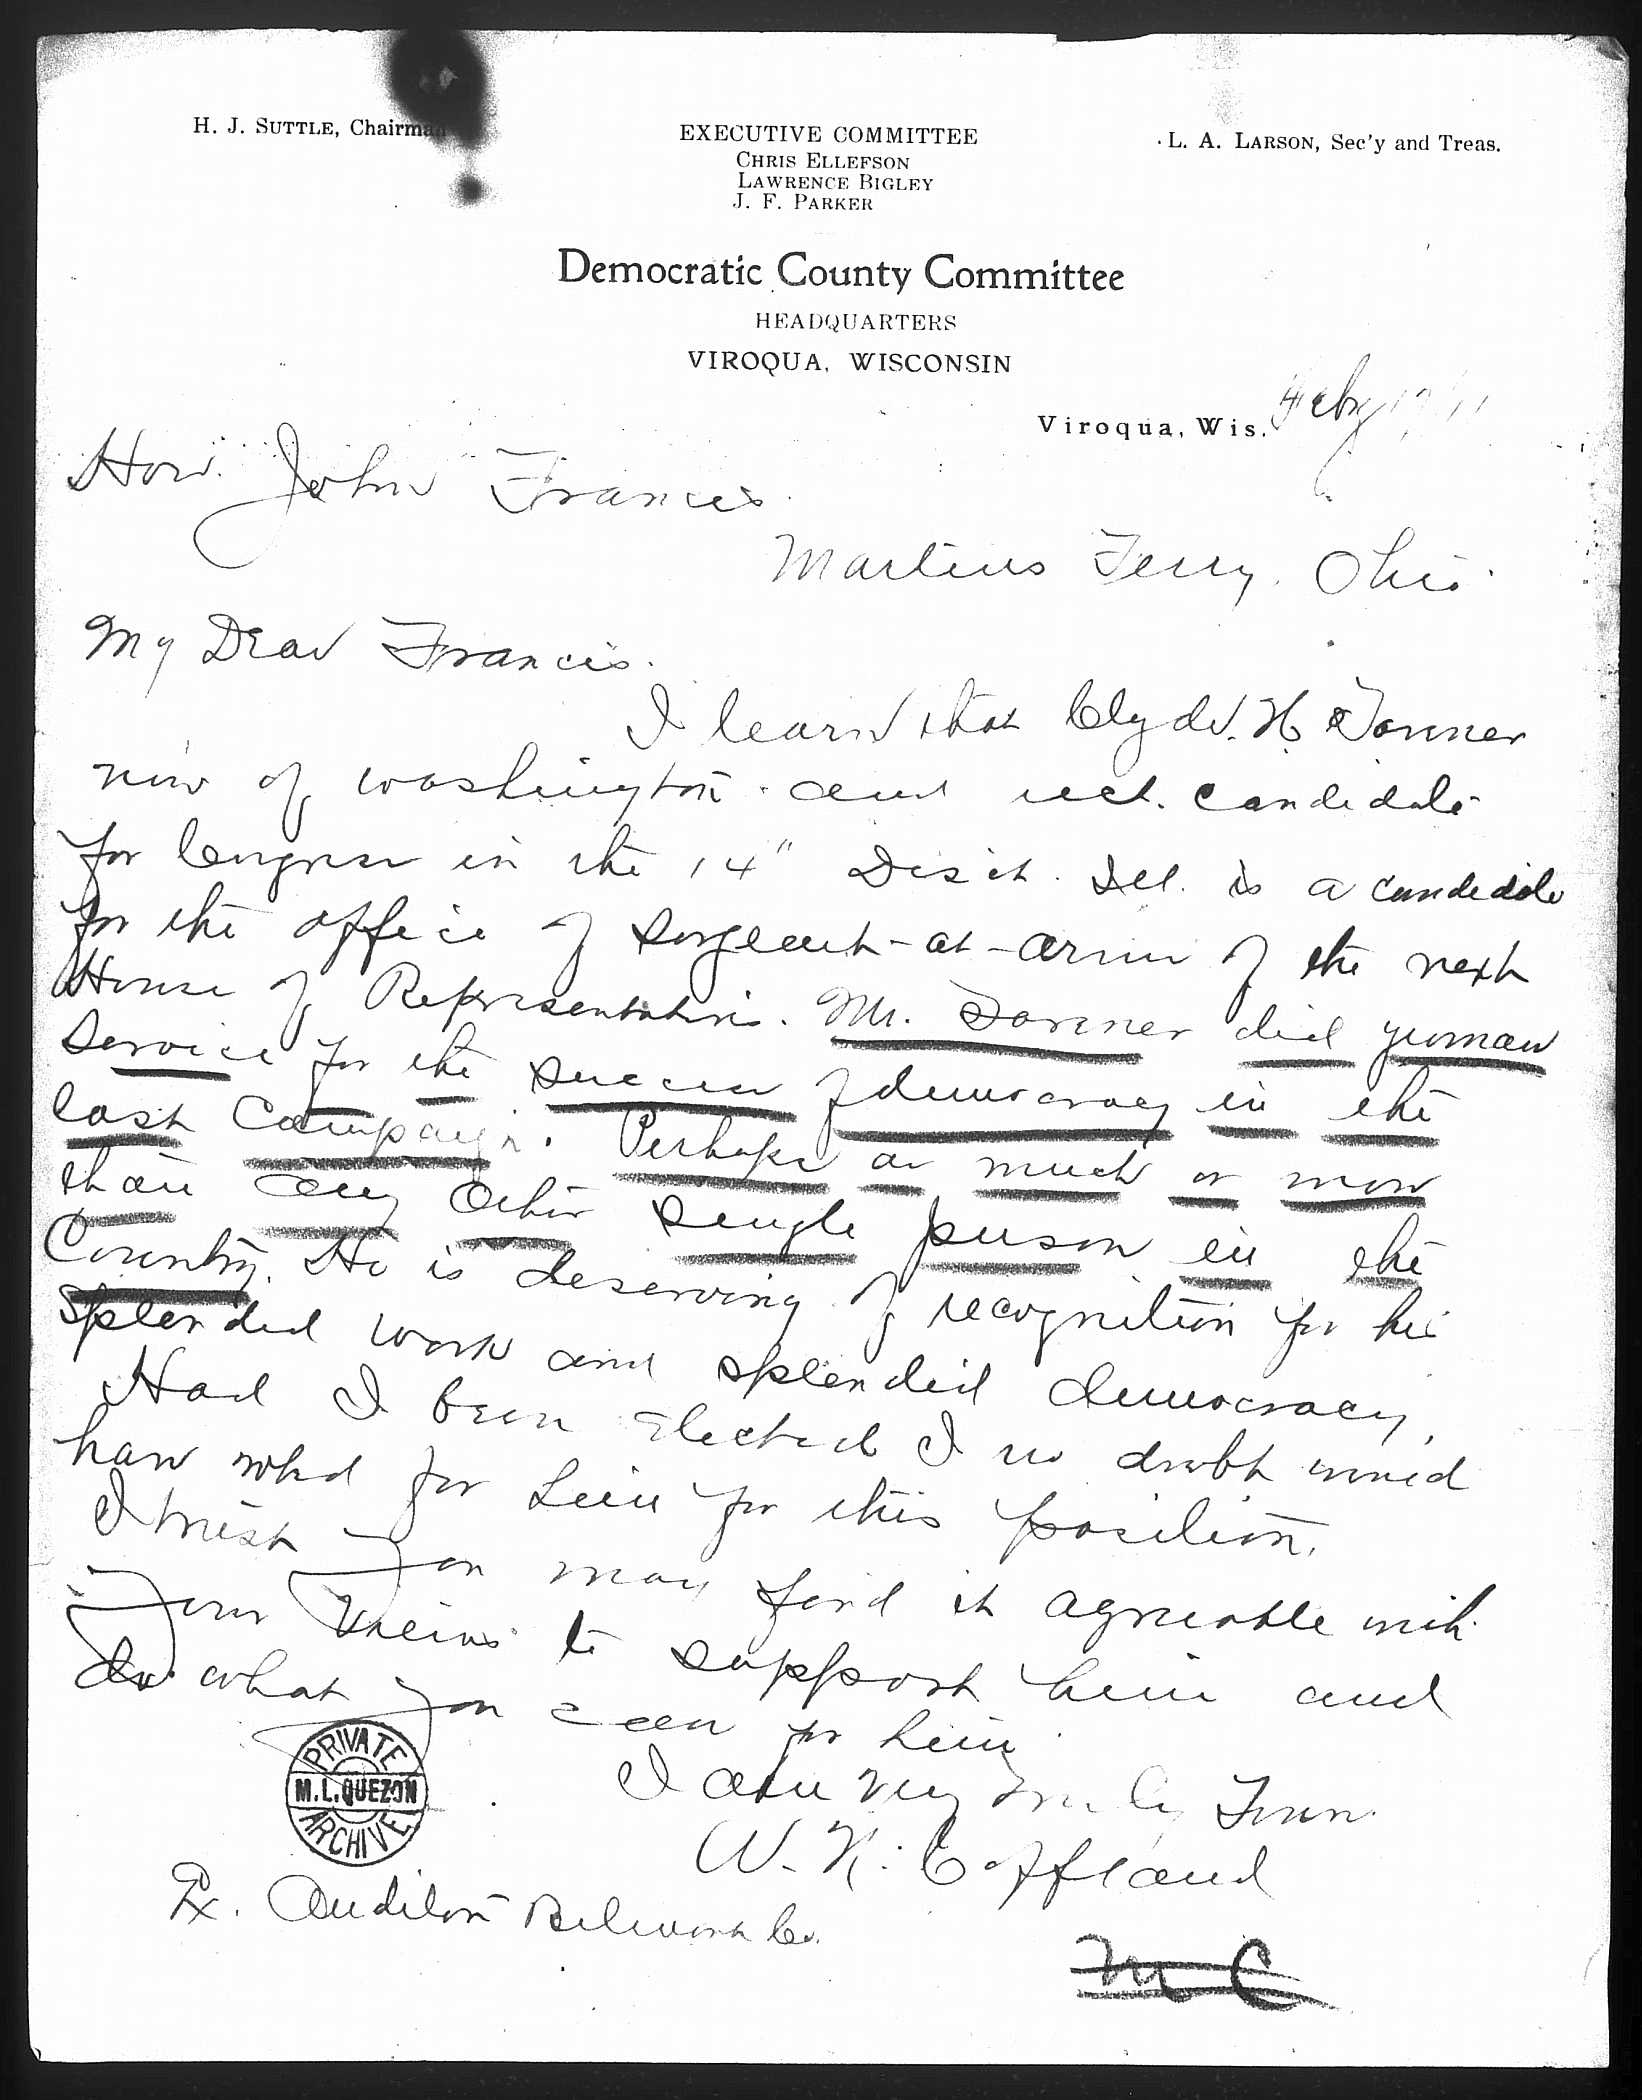 H. J. SUTTLE, Chairman
EXECUTIVE COMMITTEE
CHRIS ELLEFSON
LAWRENCE BIGLEY
J. F. PARKER
L. A. LARSON, Sec'y and Treas.
Democratic County Committee
HEADQUARTERS
VIROQUA, WISCONSIN
Viroqua, Wis. Feby
Hon. John Francis
Martins Ferry, Ohio
My Dear Francis.
I learn that Clyde. H. Tavenner
now of Washington. and rect. candidate
for Congress in the 14" Dist. Ill. is a candidate
for the office of Sergeant-at-arms of the next
House of Representatives. Mr. Tavenner did yoman
service for the success of democracy in the
last campaign. Perhaps as much or more
than any other single person in the
Country. He is deserving of recognition for his
splendid work and splendid democracy.
Had I been elected I no doubt would
have voted for him for this position.
I trust you may find it agreeable with
your views to support him and
do what you can for him.
I am very truly yours
W. N. Coffland
Ex. Auditor Belmont Co.
PRIVATE
M. L. QUEZON
ARCHIVE